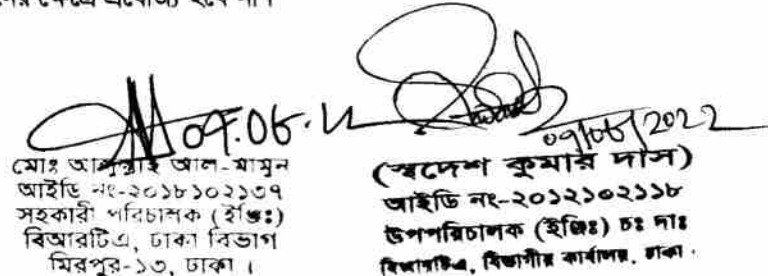 ক্ষেত্রে প্রযোজ্য হবে না।
09.06.22
09/06/2022
মোঃ আব্দুল্লাহ আল-মামুন
আইডি নং-২০১৮১০২১৩৭
সহকারী পরিচালক (ইঞ্জিঃ)
বিআরটিএ, ঢাকা বিভাগ
মিরপুর-১৩, ঢাকা ।
(স্বদেশ কুমার দাস)
আইডি নং-২০১২১০২১১৮
উপপরিচালক (ইঞ্জিঃ) চঃ দাঃ
বিআরটিএ, বিভাগীয় কার্যালয়, ঢাকা ।